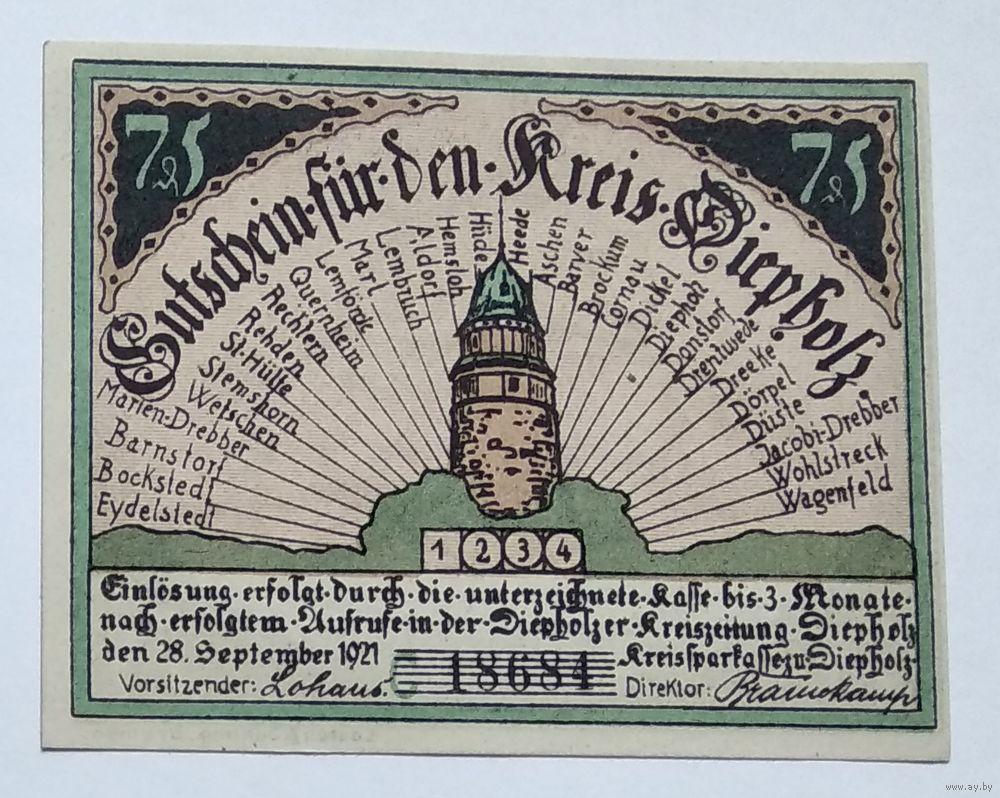 75
75
Gutschein·für·den·Kreis·Diepholz.
Eydelstedt
Bockstedt
Barnstorf
Marien-Drebber
Wetschen
Stemshorn
St-Hülfe
Rehden
Rechtern
Quernheim
Lemförde
Marl
Lembruch
Aldorf
Hemsloh
Hüde
Heede
Aschen
Barver
Brockum
Cornau
Dickel
Diepholz
Donstorf
Drentwede
Dreeke
Dörpel
Düste
Jacobi-Drebber
Wohlstreck
Wagenfeld
1 2 3 4
Einlösung·erfolgt·durch·die·unterzeichnete·Kasse·bis·3·Monate·
nach·erfolgtem·Aufrufe·in·der·Diepholzer·Kreiszeitung·Diepholz
den 28. September 1921 Kreissparkasse zu Diepholz
Vorsitzender: Lohaus. 18684 Direktor:
www.ay.by